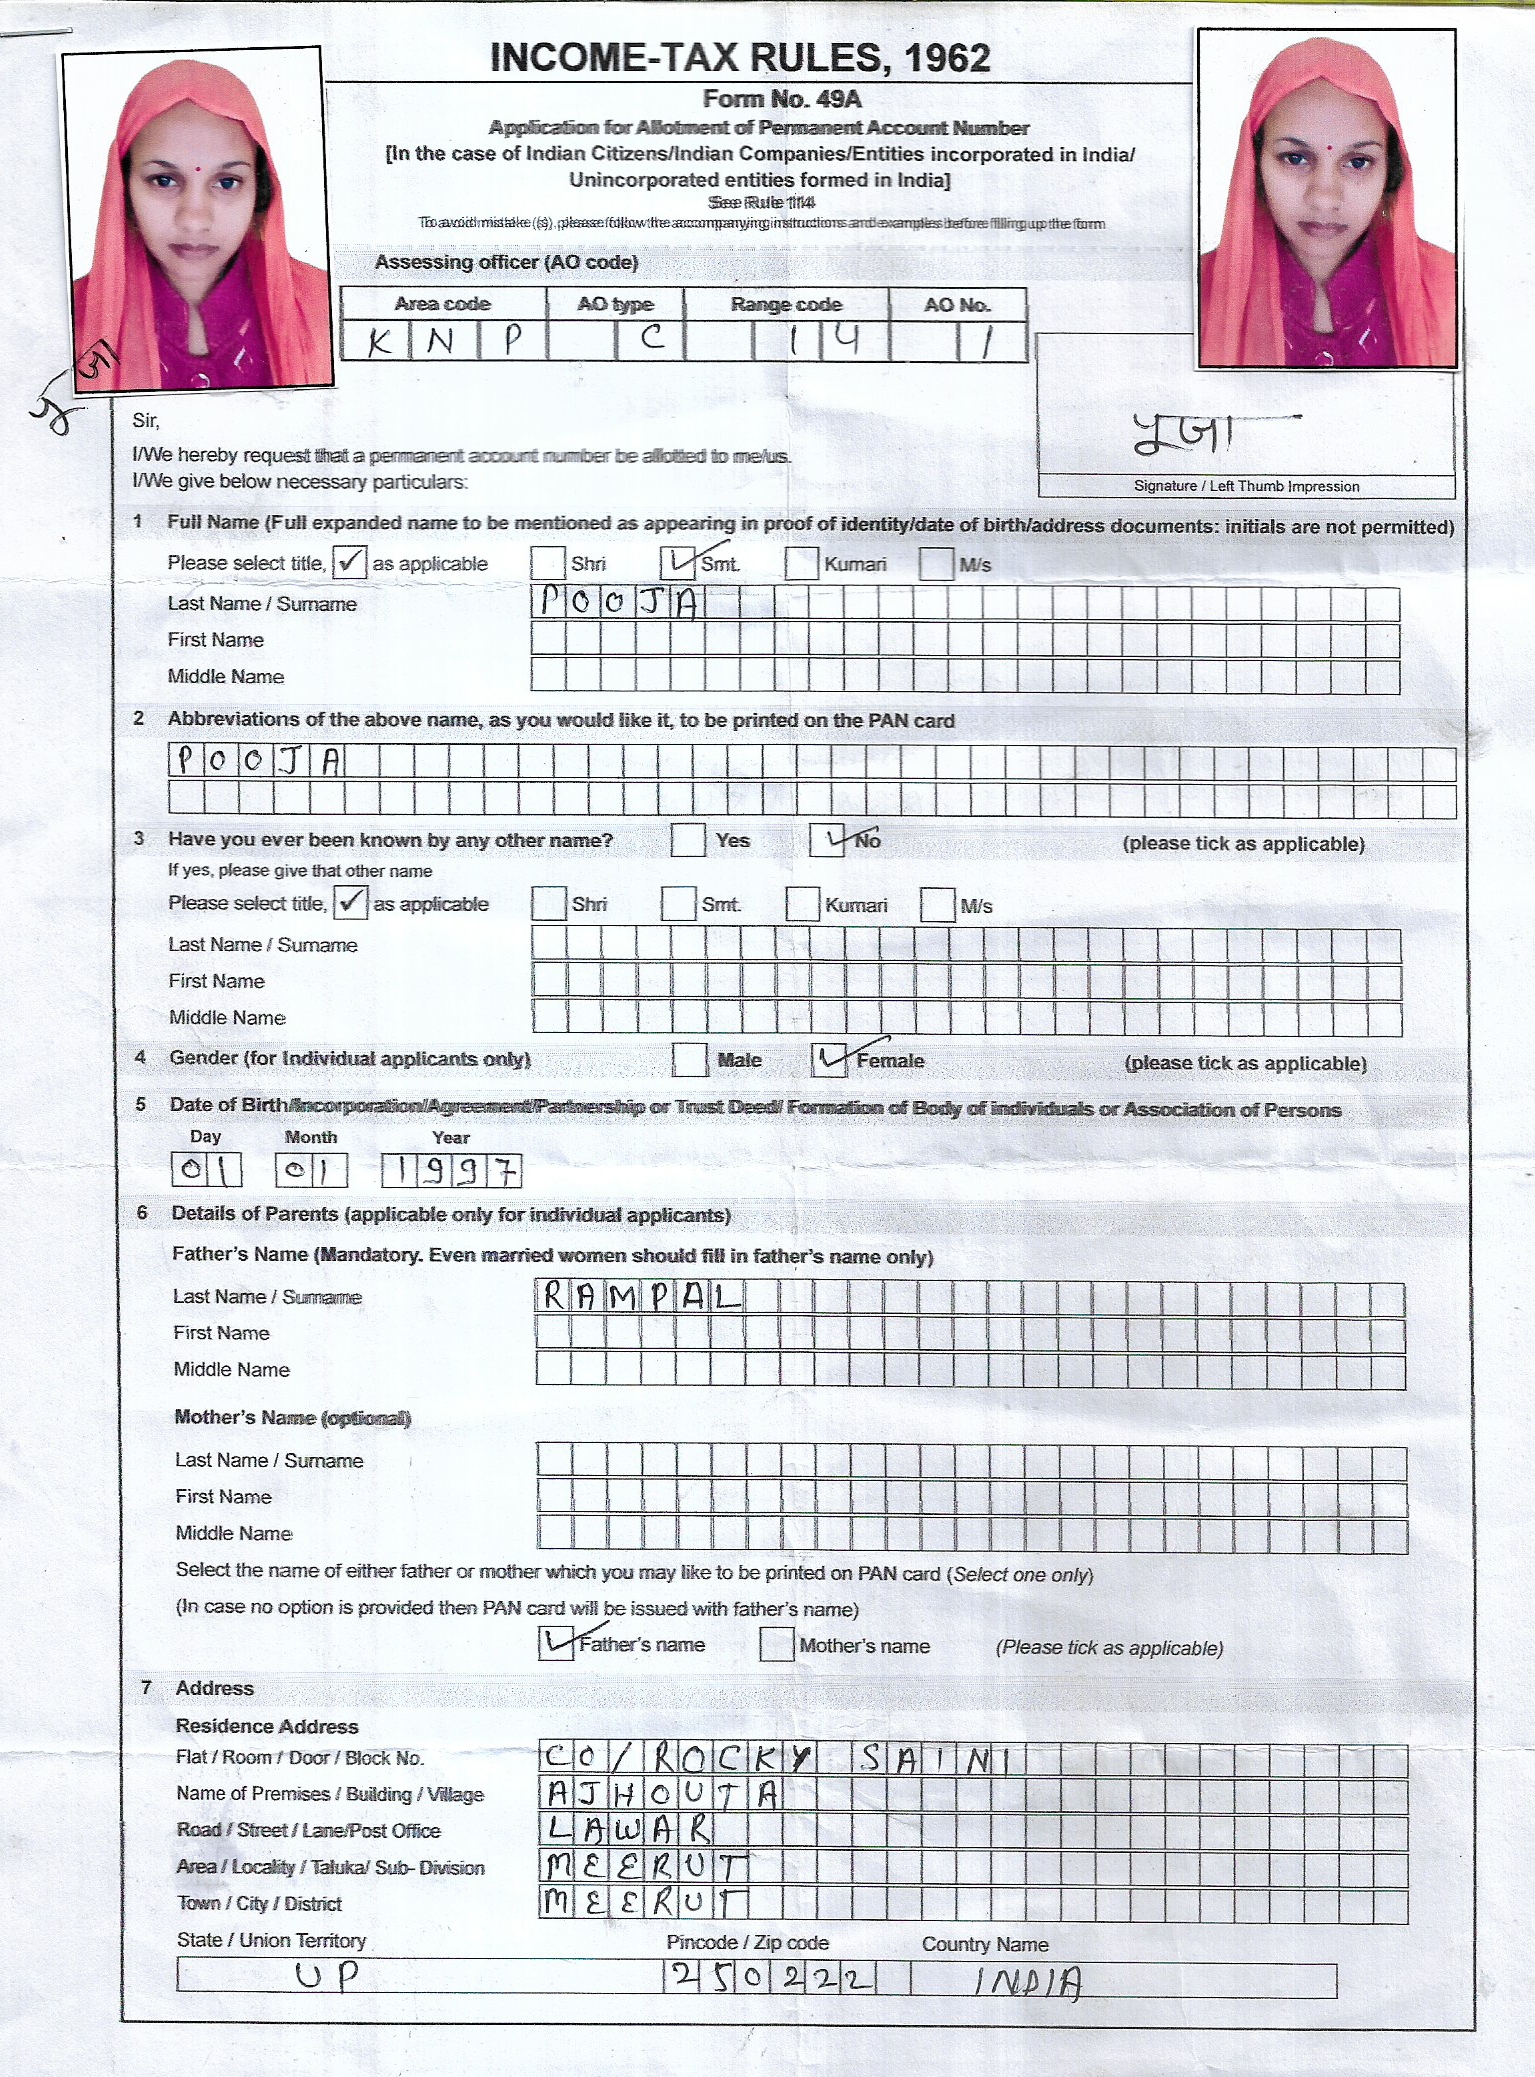 INCOME-TAX RULES, 1962
Form No. 49A
Application for Allotment of Permanent Account Number
[In the case of Indian Citizens/Indian Companies/Entities incorporated in India/
Unincorporated entities formed in India]
See Rule 114
To avoid mistake (s), please follow the accompanying instructions and examples before filling up the form
Assessing officer (AO code)
Area code AO type Range code AO No.
KNP C 14 1
पूजा
Sir,
पूजा
I/We hereby request that a permanent account number be allotted to me/us.
I/We give below necessary particulars:
Signature / Left Thumb Impression
1 Full Name (Full expanded name to be mentioned as appearing in proof of identity/date of birth/address documents: initials are not permitted)
Please select title, ✓ as applicable Shri ✓ Smt. Kumari M/s
Last Name / Surname POOJA
First Name
Middle Name
2 Abbreviations of the above name, as you would like it, to be printed on the PAN card
POOJA
3 Have you ever been known by any other name? Yes ✓ No (please tick as applicable)
If yes, please give that other name
Please select title, ✓ as applicable Shri Smt. Kumari M/s
Last Name / Surname
First Name
Middle Name
4 Gender (for Individual applicants only) Male ✓ Female (please tick as applicable)
5 Date of Birth/Incorporation/Agreement/Partnership or Trust Deed/ Formation of Body of individuals or Association of Persons
Day Month Year
01 01 1997
6 Details of Parents (applicable only for individual applicants)
Father's Name (Mandatory. Even married women should fill in father's name only)
Last Name / Surname RAMPAL
First Name
Middle Name
Mother's Name (optional)
Last Name / Surname
First Name
Middle Name
Select the name of either father or mother which you may like to be printed on PAN card (Select one only)
(In case no option is provided then PAN card will be issued with father's name)
✓ Father's name Mother's name (Please tick as applicable)
7 Address
Residence Address
Flat / Room / Door / Block No. CO/ROCKY SAINI
Name of Premises / Building / Village AJHOUTA
Road / Street / Lane/Post Office LAWAR
Area / Locality / Taluka/ Sub- Division MEERUT
Town / City / District MEERUT
State / Union Territory Pincode / Zip code Country Name
UP 250222 INDIA